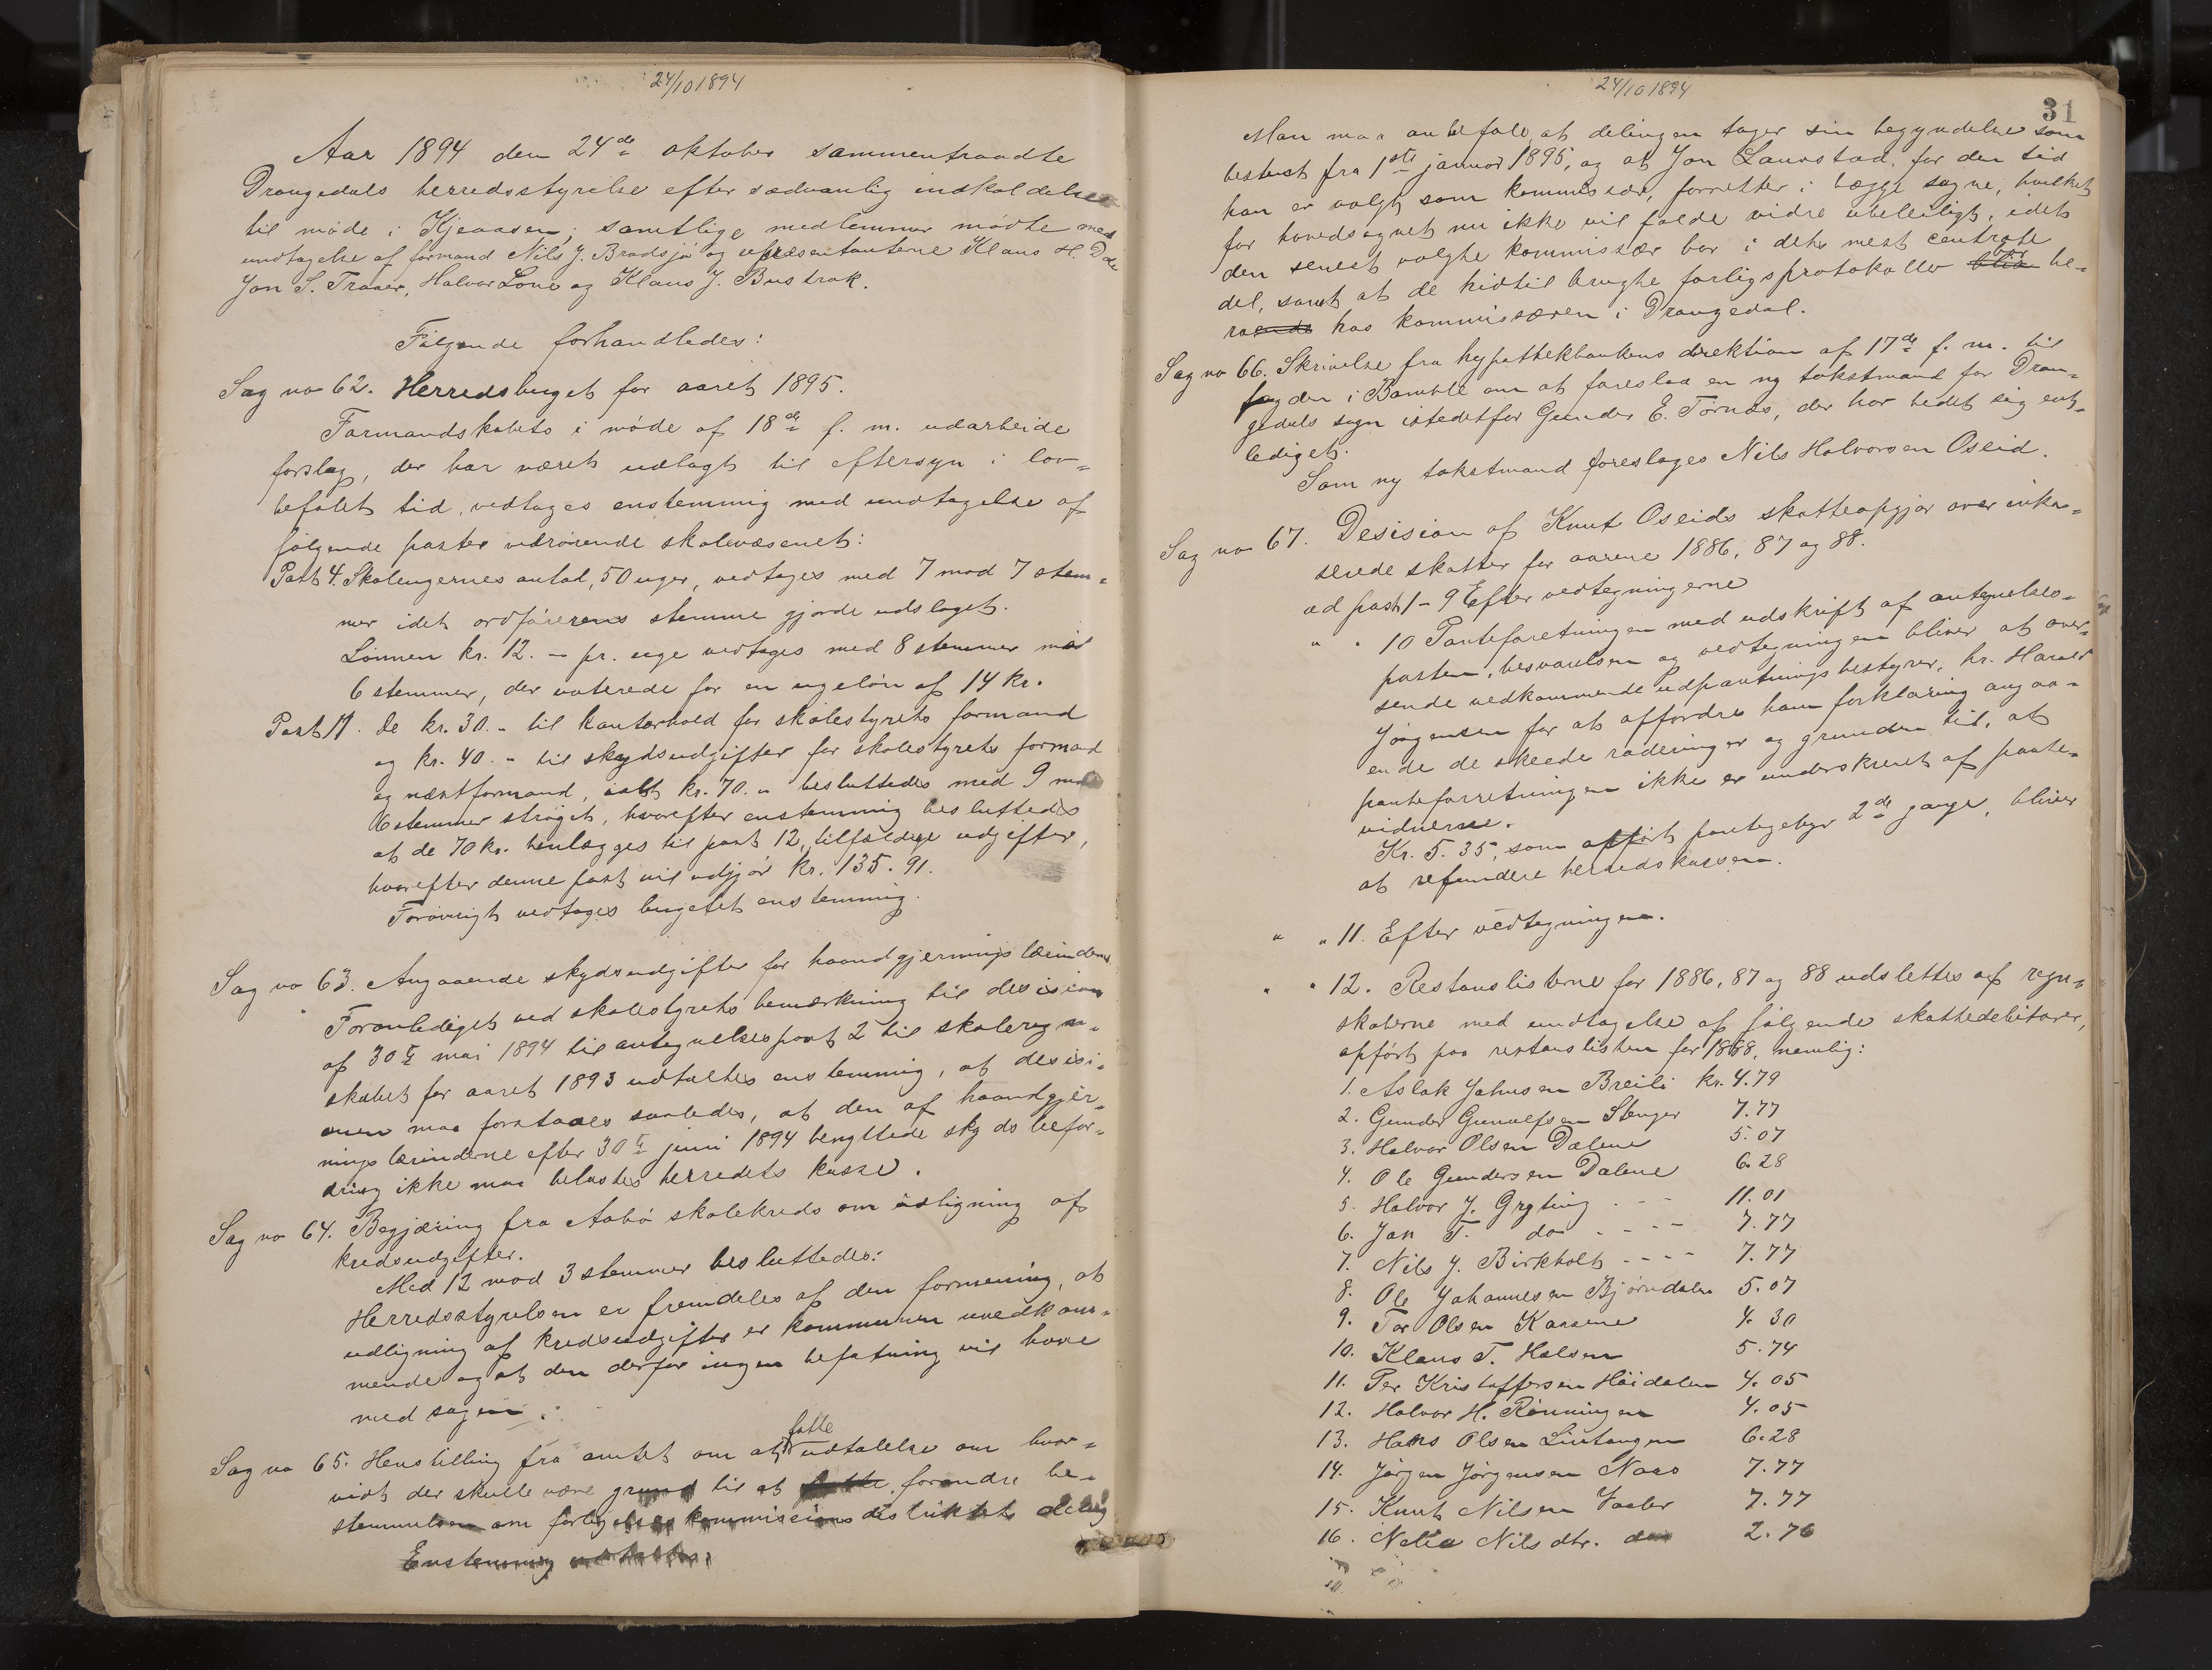 24/10 1894
Aar 1894 den 24de oktober sammentraadte
Drangedals herredsstyrelse efter sædvanlig indkaldelse
til møde i Kjeaasen; samtlige medlemmer mødte med
undtagelse af formand Nils J. Bradsjø og repræsentanterne Klaus H. Dale
Jon S. Traaer, Halvor Lone og Klaus J. Bustrak.
Følgende forhandledes:
Sag no 62. Herredsbuget for aaret 1895.
Formandskabets i møde af 18de f. m. udarbeide
forslag, der har været udlagt til eftersyn i lov-
befalet tid, vedtages enstemmig med undtagelse af
følgende poster vedrørende skolevæsenet:
Post 4. Skoleugernes antal, 50 uger, vedtages med 7 mod 7 stem-
mer idet ordførerens stemme gjorde udslaget.
Lønnen kr. 12. - pr. uge vedtages med 8 stemmer mod
6 stemmer, der voterede for en ugeløn af 14 kr.
Post 11. De kr. 30. - til kontorhold for skolestyrets formand
og kr. 40. - til skydsudgifter for skolestyrets formand
og næstformand, ialt kr. 70. - besluttedes med 9 mod
6 stemmer strøget, hvorefter enstemmig besluttedes
at de 70 kr. henlægges til post 12, tilfældige udgifter,
hvorefter denne post vil udgjør kr. 135. 91.
Forøvrigt vedtages bugetet enstemmig.
Sag no 63. Angaaende skydsudgifter for haandgjernings lærinderne
Foranlediget ved skolestyrets bemærkning til desision
af 30te mai 1894 til antegnelsespost 2 til skoleregn-
skabet for aaret 1893 udtaltes enstemmig, at desisi-
onen maa forstaaes saaledes, at den af haandgjer-
nings lærinderne efter 30te juni 1894 benyttede skydsbefor-
dring ikke maa belastes herredets kasse.
Sag no 64. Begjæring fra Aabø skolekreds om udligning af
kredsudgifter.
Med 12 mod 3 stemmer besluttedes:
Herredsstyrelsen er fremdeles af den formening, at
udligning af kredsudgifter er kommunen uvedkom-
mende og at den derfor ingen befatning vil have
med sagen.
fatte
Sag no 65. Henstilling fra amtet om at udtalelse om hvor-
vidt der skulle være grund til at fatte forandre be-
stemmelsen om forligelses kommissions distriktets deling
Enstemmig
24/10 1894
31
Man maa anbefale, at delingen tager sin begyndelse som
bestemt fra 1ste januar 1895, og at Jon Lauvstad, for den tid
han er valgt som kommissær, forretter i begge sogne, hvilket
for hovedsognet nu ikke vil falde vidre ubeleiligt, idet
den senest valgte kommissær bor i dets mest centrale
bør
del, samt at de hidtil brugte forligsprotokoller blive be-
roende hos kommissæren i Drangedal.
Sag no 66. Skrivelse fra hypothekbankens direktion af 17de f. m. til
fogden i Bamble om at foreslaa en ny takstmand for Dran-
gedals sogn istedetfor Gunder E. Tørnes, der har bedet sig ent-
lediget.
Som ny takstmand foreslages Nils Halvorsen Oseid.
Sag no 67. Desision af Knut Oseids skatteopgjør over inkas-
serede skatter for aarene 1886, 87 og 88.
ad post 1 - 9 Efter vedtegningerne
" " 10 Panteforetningen med udskrift af antegnelses-
posten, besvarelsen og vedtegningen bliver at over-
sende vedkommende udpantningsbestyrer, hr. Harald
Jørgensen for at affordre ham forklaring angaa-
ende de skeede raderinger og grunden til, at
panteforretningen ikke er underskrevet af pante-
vidnerne.
Kr. 5. 35, som opført pantegebyr 2de gange, bliver
at refundere herredskassen.
" " 11. Efter vedtegningen.
" " 12. Restanslisterne for 1886, 87 og 88 udslettes af regn-
skaberne med undtagelse af følgende skattedebitorer,
opført paa restanslisten for 1888, nemlig:
1. Aslak Jahnsen Breili kr. 4.79
2. Gunder Gunulfsen Stenger 7.77
3. Halvor Olsen Dalene 5.07
4. Ole Gundersen Dalene 6.28
5. Halvor J. Grgting - - 11.01
6. Jan T. do - - - - 7.77
7. Nils J. Birkholt - - - - 7.77
8. Ole Johannesen Bjørndalen 5.07
9. Tor Olsen Kasene 4. 30
10. Klaus T. Halsen 5.74
11. Per Kristoffersen Høidalen 4. 05
12. Halvor H. Rønningen 4.05
13. Hans Olsen Lintangen 6.28
14. Jørgen Jørgensen Naas 7.77
15. Knut Nilsen Vaaler 7.77
16. Nelia Nilsdtr. do 2.76